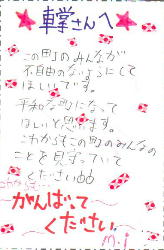 ★車掌さんへ★
この町のみんなが
不自由のないようにして
ほしいです。
平和な町になって
ほしいと思います。
これからもこの町のみんなの
ことを見守っていて
ください
これからも
がんばって
ください。
M.I